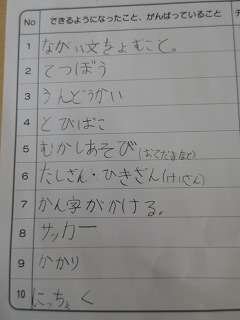 No できるようになったこと、がんばっていること
1 なかい文をよむこと。
2 てつぼう
3 うんどうかい
4 とびばこ
5 むかしあそび(おてだまなど)
6 たしざん・ひきざん(けいさん)
7 かん字がかける。
8 サッカー
9 かかり
10 にっちょく